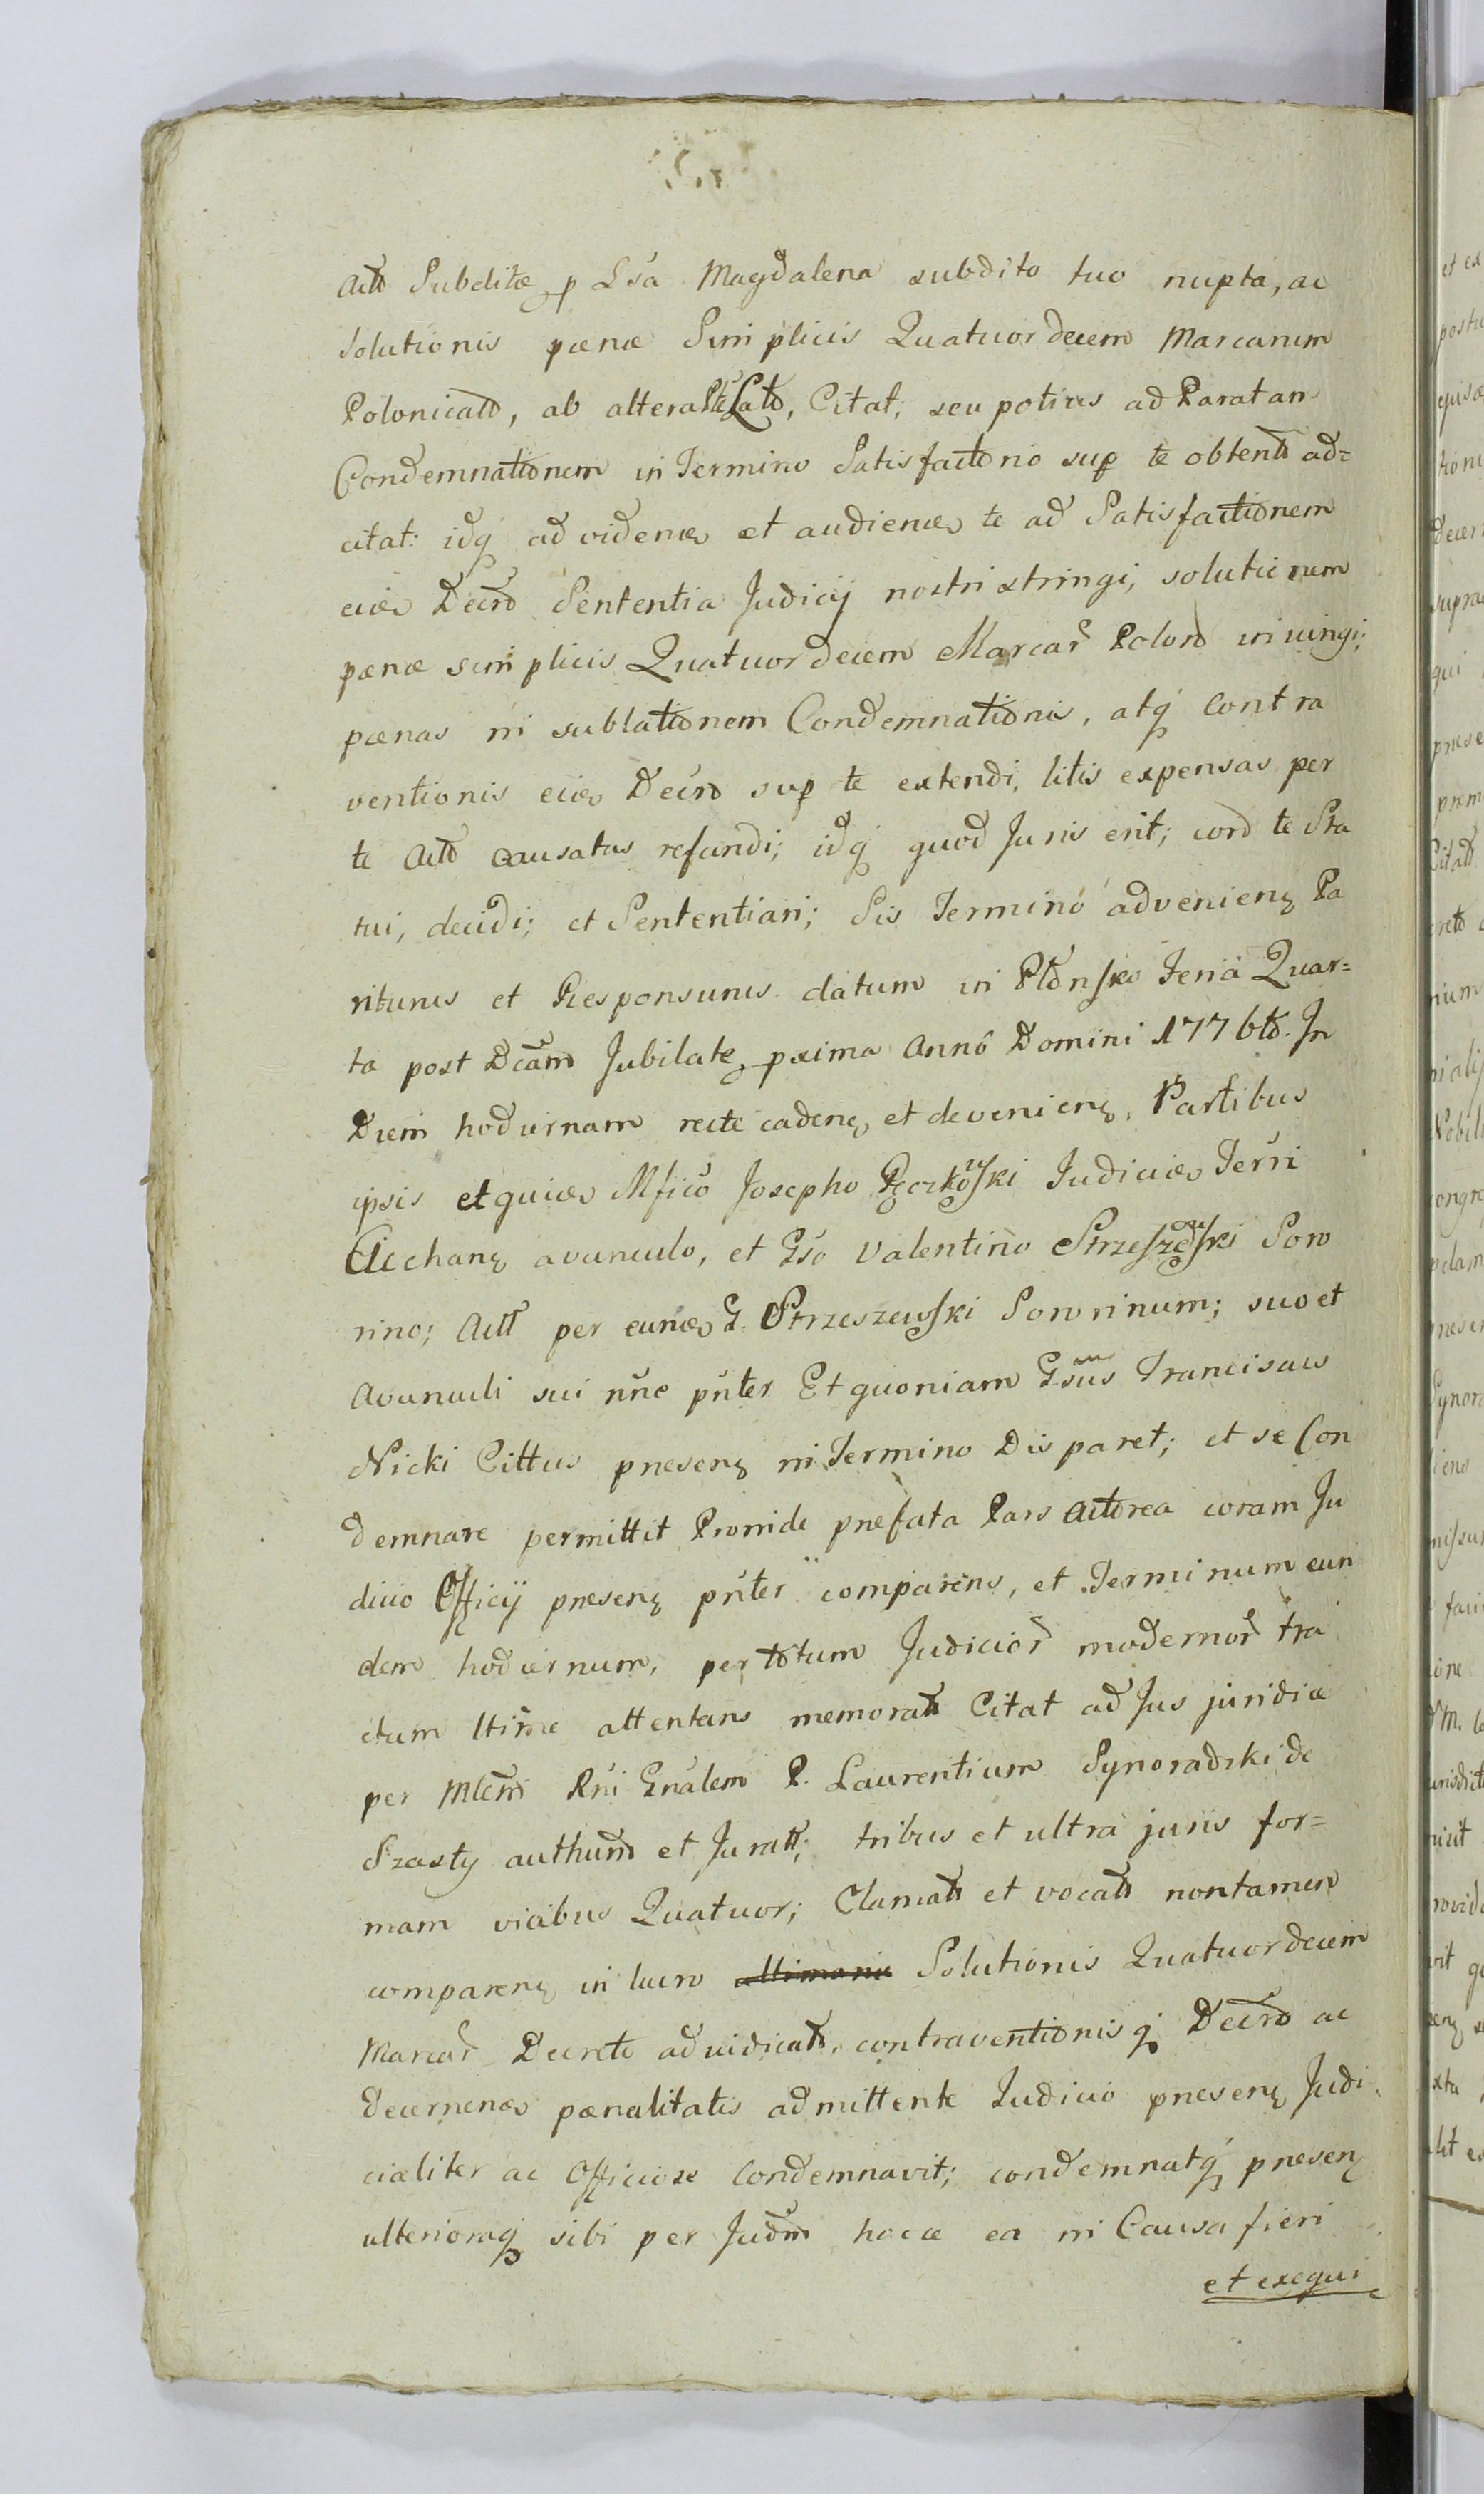 Actt Subditæ p Lsa Magdalena subdito tuo nupta, ac
Solutionis pœnæ Simplicis Quatuordecem Marcarum
Polonicatt, ab altera Pte Latt, Citat, seu potius ad Paratam
Condemnationem in Termino Satisfactorio sup te obtent ad=
citat: idq ad videng et audieng te ad Satisfactionem
eius Decro Sententia Judicij nostri stringi, solutionem
pœnæ simplicis Quatuordecem Marcar Polon iniungi;
pœnas in sublationem Condemnationis, atq Contra
ventionis eius Decro sup te extendi, litis expensas per
te Actt causatas refundi; idq quod Juris erit; cord te Sta
tui, decidi; et Sententiari; Sis Termino advenieng Pa
riturus et Responsurus. datum in Płońsko Feria Quar=
ta post Dcam Jubilate, pxima Anno Domini 1776to. In
Diem hodiernam recte cadeng, et devenieng, Partibus
ipsis et quidem Mfico Josepho Pęczkowski Judice Terri
Ciechang avunculo, et Gso Valentino Strzeszewski Soro
rino; Actt per eung G. Strzeszewski Sororinum; suo et
Avunculi sui nne pnter Et quoniam Gsus Franciscus
Nicki Cittus preseng in Termino Disparet; et se Con
demnare permittit Proinde præfata Pars Actorea coram Ju
dicio Officij preseng pnter comparens, et Terminum eun
dem hodiernum, per totum Judicior modernor tra
ctum ltime attentans memoratt Citat ad Jus juridice
per Mltrm Rni Gnalem P. Laurentium Synoradzki de
Szasty authum et Juratt; tribus et ultra juris for=
mam vicibus Quatuor; Clamatt et vocatt nontamen
compareng in lucro Solutionis Quatuordecem
Marcar Decreto adiudicatt, contraventionisq Decro ac
decerneng pœnalitatis admittente Judicio preseng Judi
cialiter ac Officiose Condemnavit; condemnatq preseng
ulterioraq sibi per Judm hocce ea in Causa fieri
et exequi